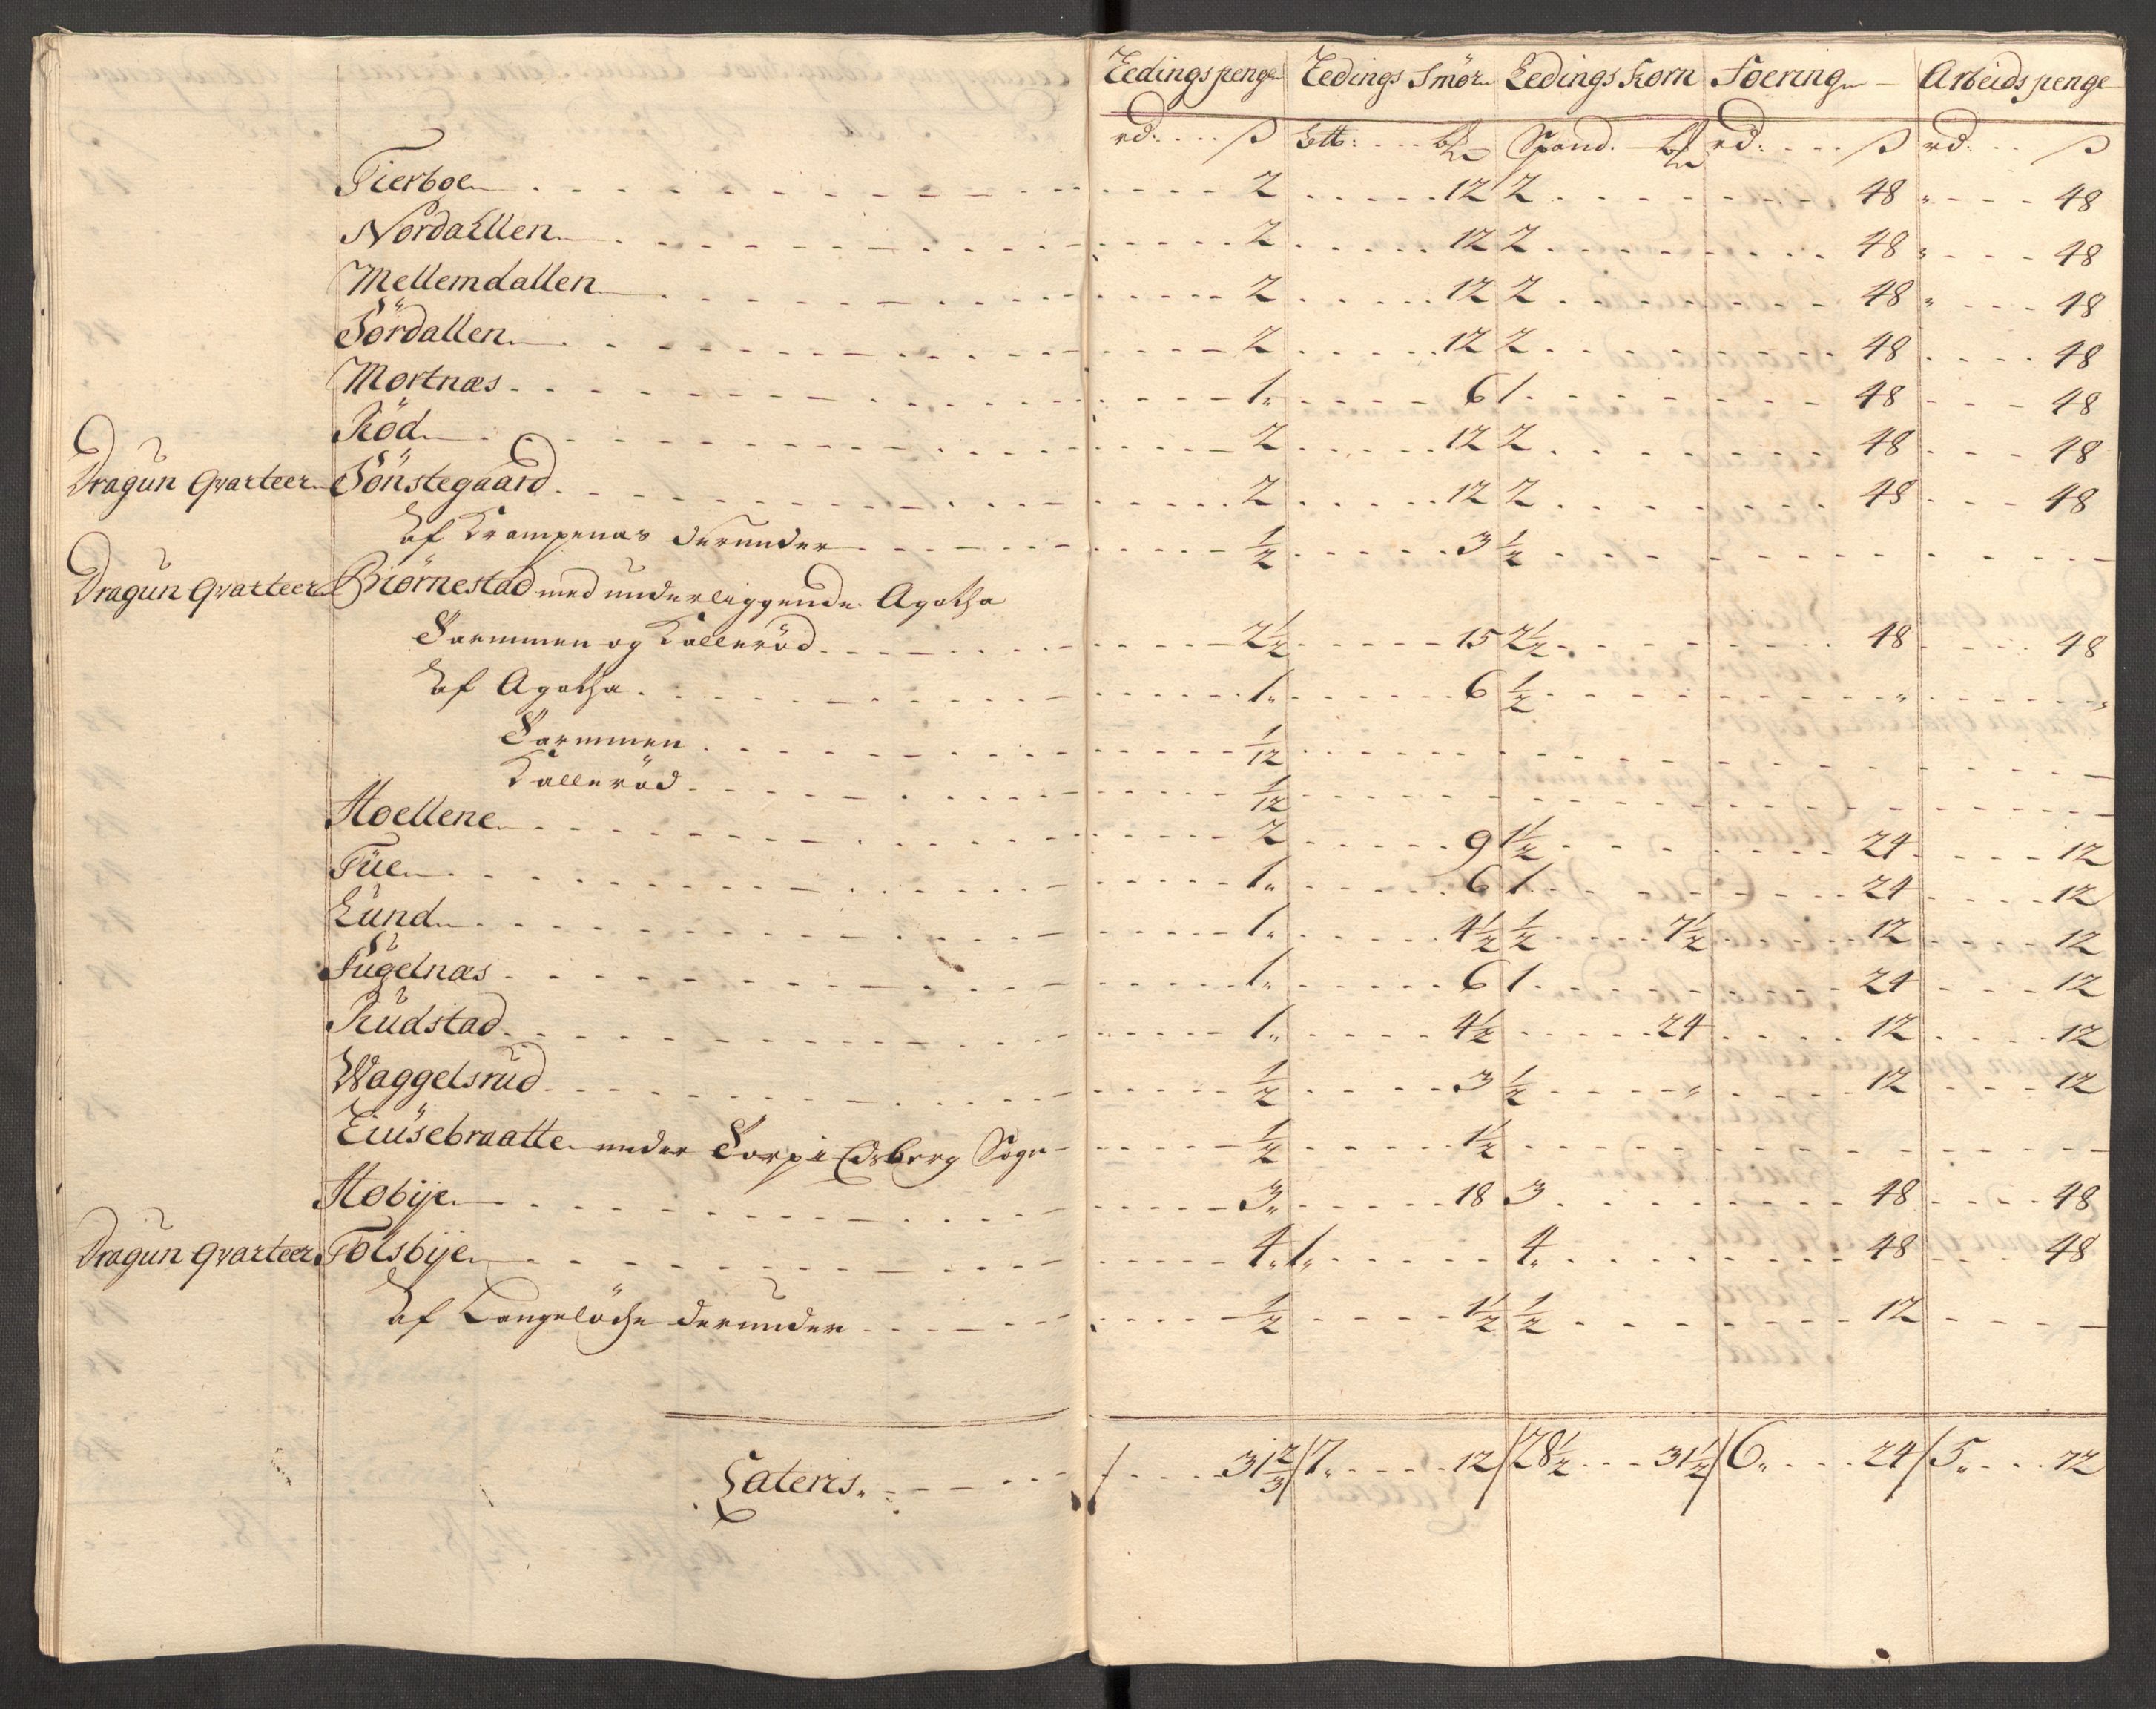 Ledingspenge Ledings Smör Ledings Korn Foering Arbeids penge
rd: ß Ltt: Spand. rd: ß rd: ß
Tierboe 2 12 2 48 " 48
Nordallen 2 12 2 48 " 48
Mellemdallen 2 12 2 48 " 48
Sördallen 2 12 2 48 48
Mortnæs 1" 6 1 48 48
Röd 2 12 2 48 48
Dragun Qvarteer Sönstegaard 2 12 2 48 48
Af Krampenæs derunder 1/2 3 1/2
Dragun Qvarteer Biörnestad med underliggende Agatha
Sarmmen og Kalleröd 2 1/2 15 2 1/2 48 48
Af Agatha 1" 6 1/2 " "
Sarmmen 1/12
Kalleröd 1/12
Hoellene 2 9 1 1/2 24 12
Tüe 1" 6 1 24 12
Lund 1" 4 1/2 1/2 7 1/2 12 12
Fugelnæs 1" 6 1 24 12
Rudstad 1" 4 1/2 24 12 12
Waggelsrud 1/2 3 1/2 " 12 12
Eiüsebraatte under Torp i Edsberg Sogn 1/2 1 1/2
Hobÿe 3" 18 3 48 48
Dragun Qvarteer Tolsbÿe 4" 1" 4" 48 48
Af Langelöche derunder 1/2 1 1/2 1/2 12
Lateris 31 2/3 7" 12 28 1/2 31 1/2 6" 24 5" 72